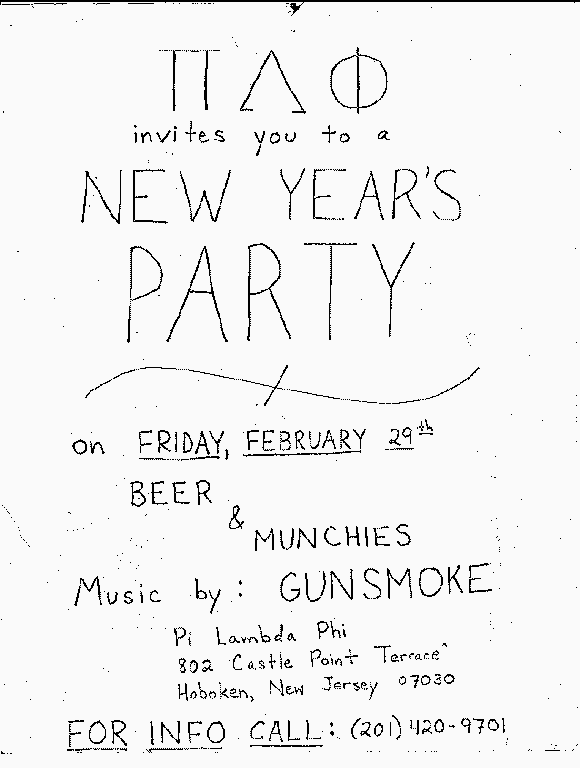 ΠΛΦ
invites you to a
NEW YEAR'S
PARTY
on FRIDAY, FEBRUARY 29th
BEER
&
MUNCHIES
Music by: GUNSMOKE
Pi Lambda Phi
802 Castle Point Terrace
Hoboken, New Jersey 07030
FOR INFO CALL: (201) 420-9701